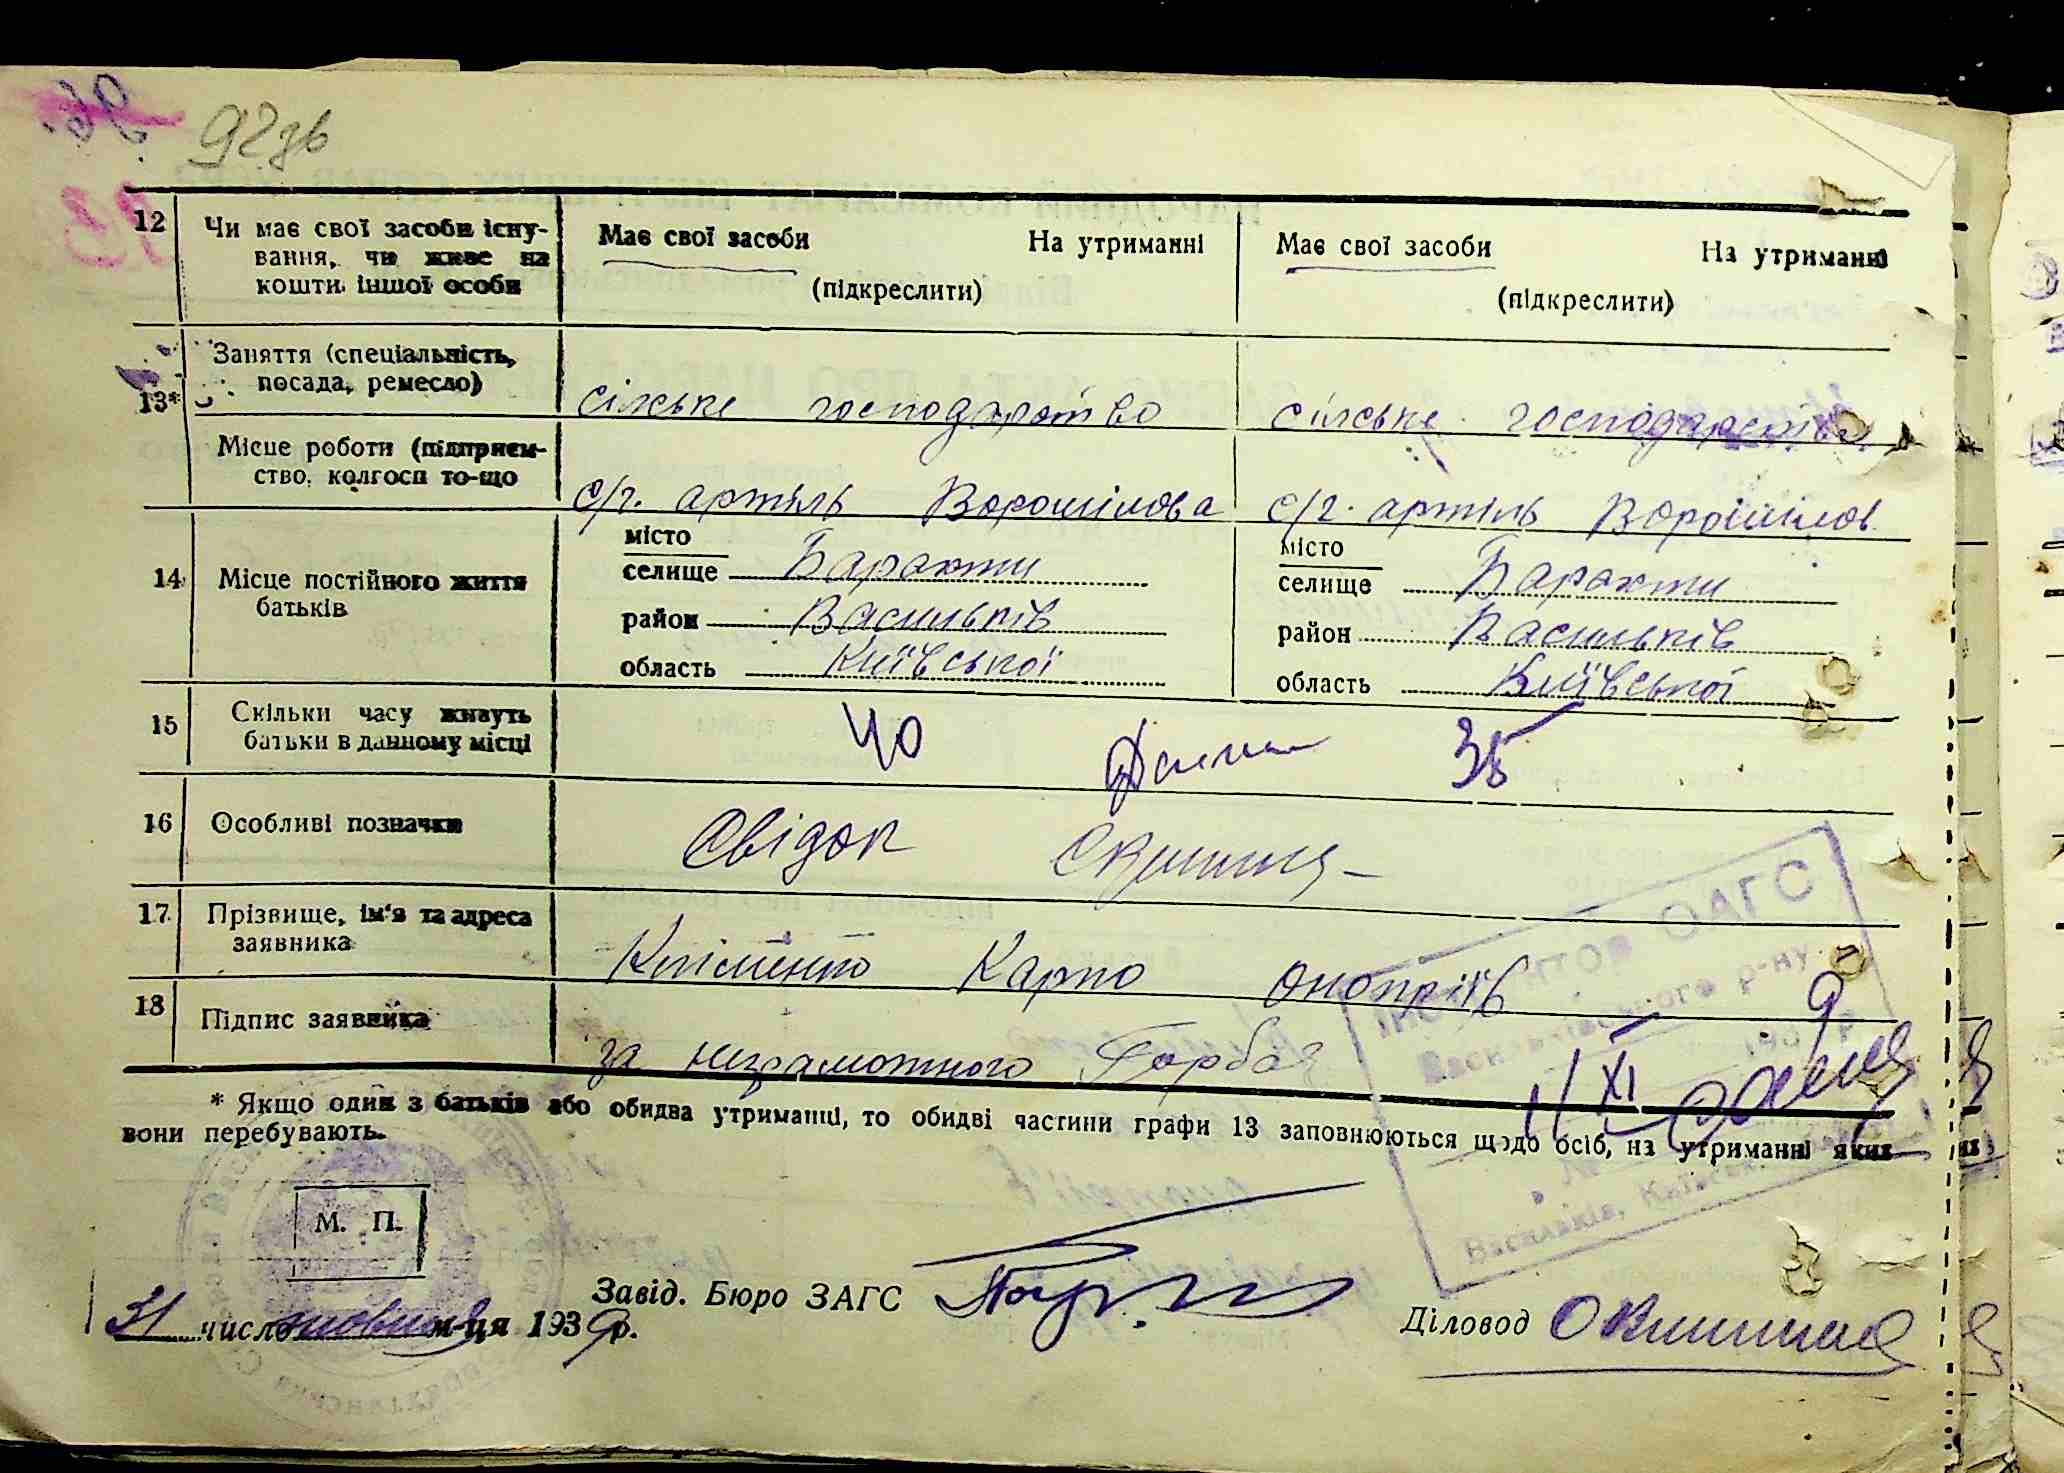 92зв
12 Чи має свої засоби існу- Має свої засоби На утриманні Має свої засоби На утриманні
вання, чи живе на
кошти іншої особи (підкреслити) (підкреслити)
13* Заняття (спеціальність,
посада, ремесло) сільське господарство сільське господарство
Місце роботи (підприєм-
ство, колгосп то-що с/г. артіль Ворошілова с/г. артіль Ворошілов
14 Місце постійного життя
батьків
місто місто
селище Барахти селище Барахти
район Васильків район Васильків
область Київської область Київської
15 Скільки часу живуть
батьки в данному місці 40 35
16 Особливі позначки Свідок
17 Прізвище, ім'я та адреса
заявника Кліменко Карпо Онопріїв
18 Підпис заявника за неграмотного Горбая
* Якщо один з батьків або обидва утриманці, то обидві частини графи 13 заповнюються щодо осіб, на утриманні яких
вони перебувають.
ОАГС
р-ну
11/XI
Васильків, Київськ
М. П.
Завід. Бюро ЗАГС
31 число жовтня м-ця 1939 р.
Діловод